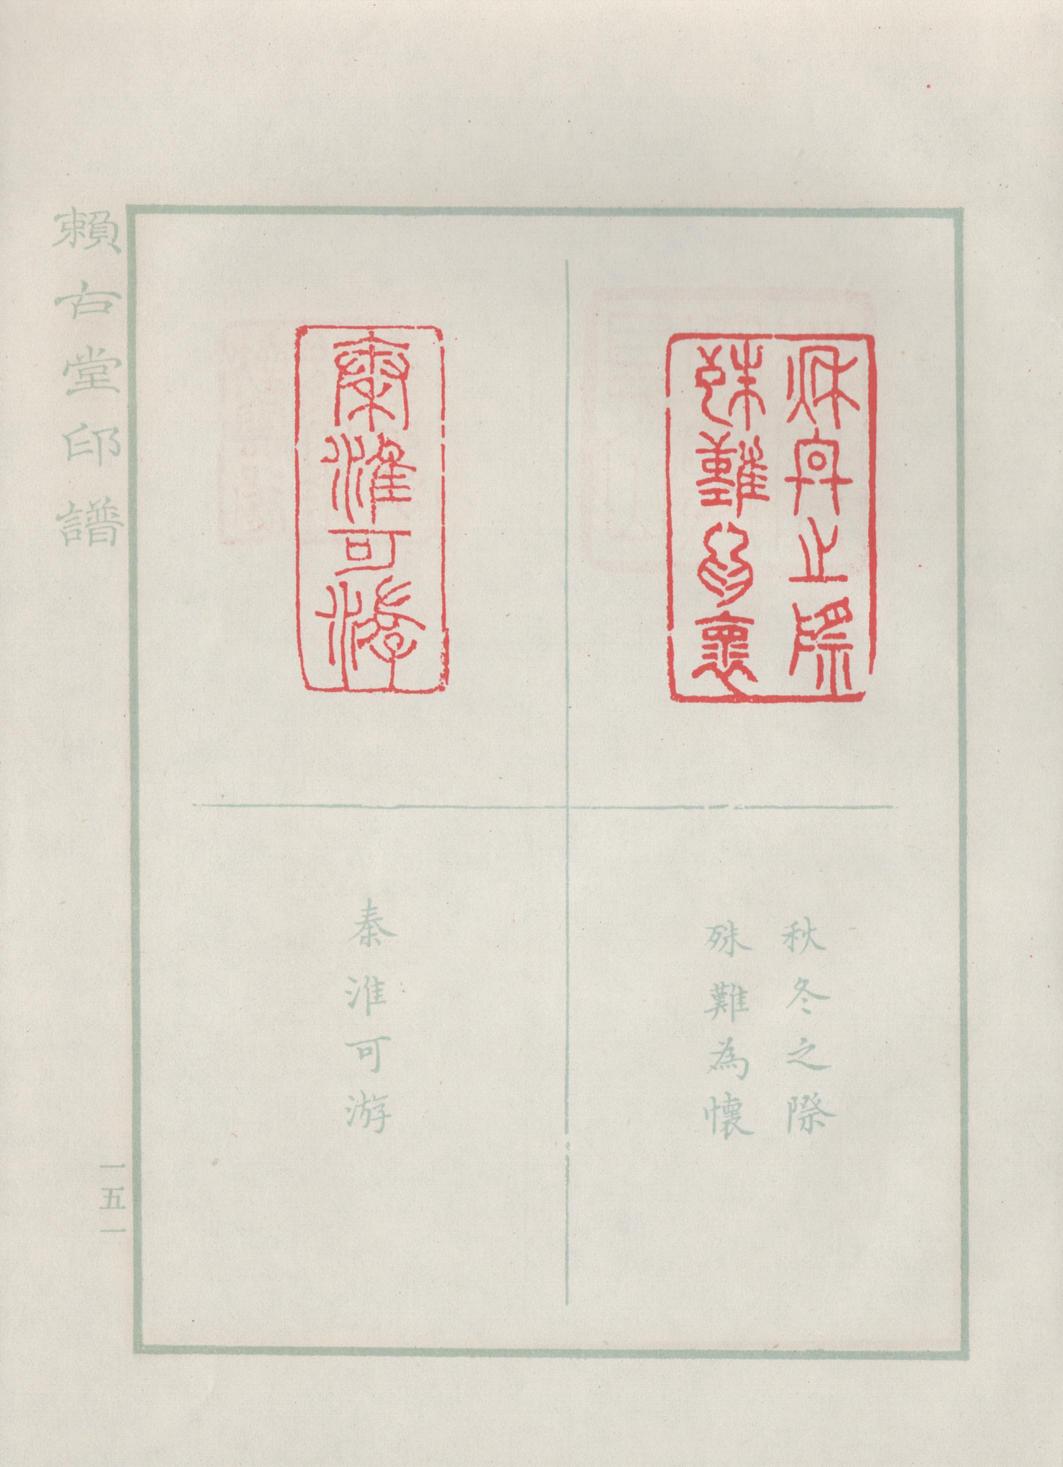 秋冬之際
殊難為懷
秋冬之際
殊難為懷
秦淮可游
秦淮可游
賴古堂印譜
一五一